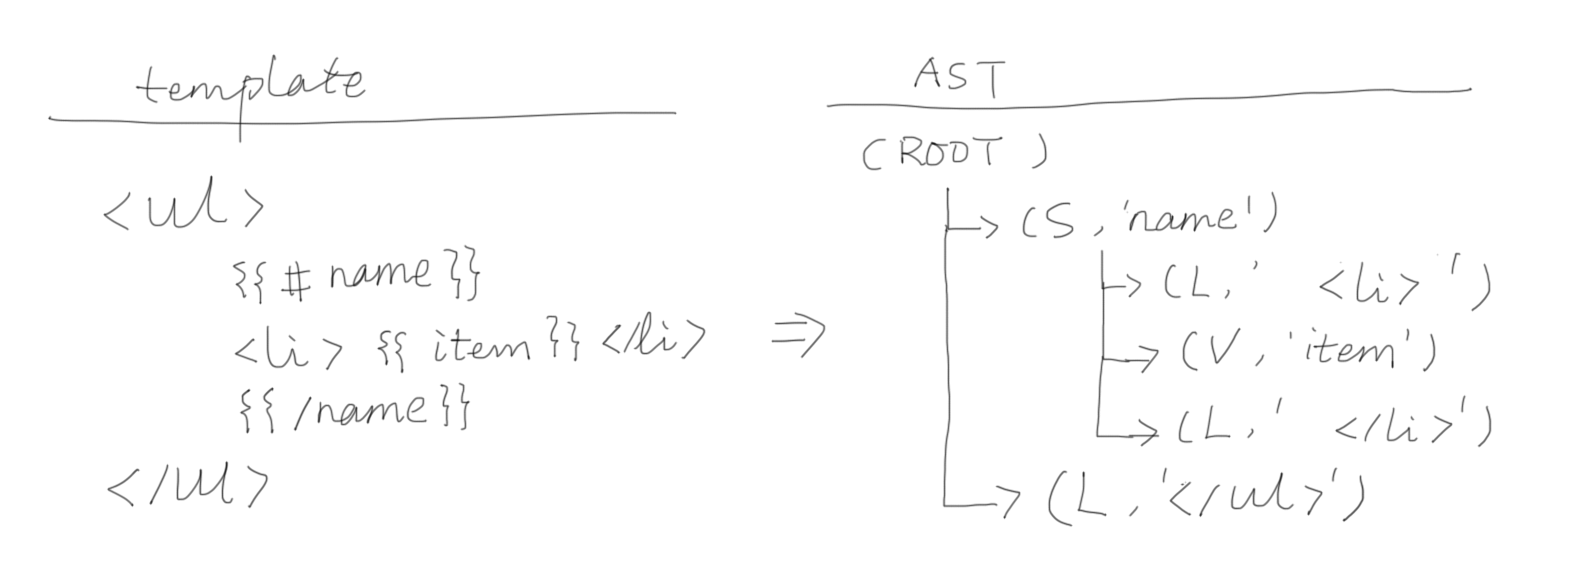 template
<ul>
{{ # name }}
<li> {{ item }} </li>
{{ /name }}
</ul>
⇒
AST
(ROOT)
(S, 'name')
(L, '   <li> ')
(V, 'item')
(L, '   </li>')
(L, '</ul>')